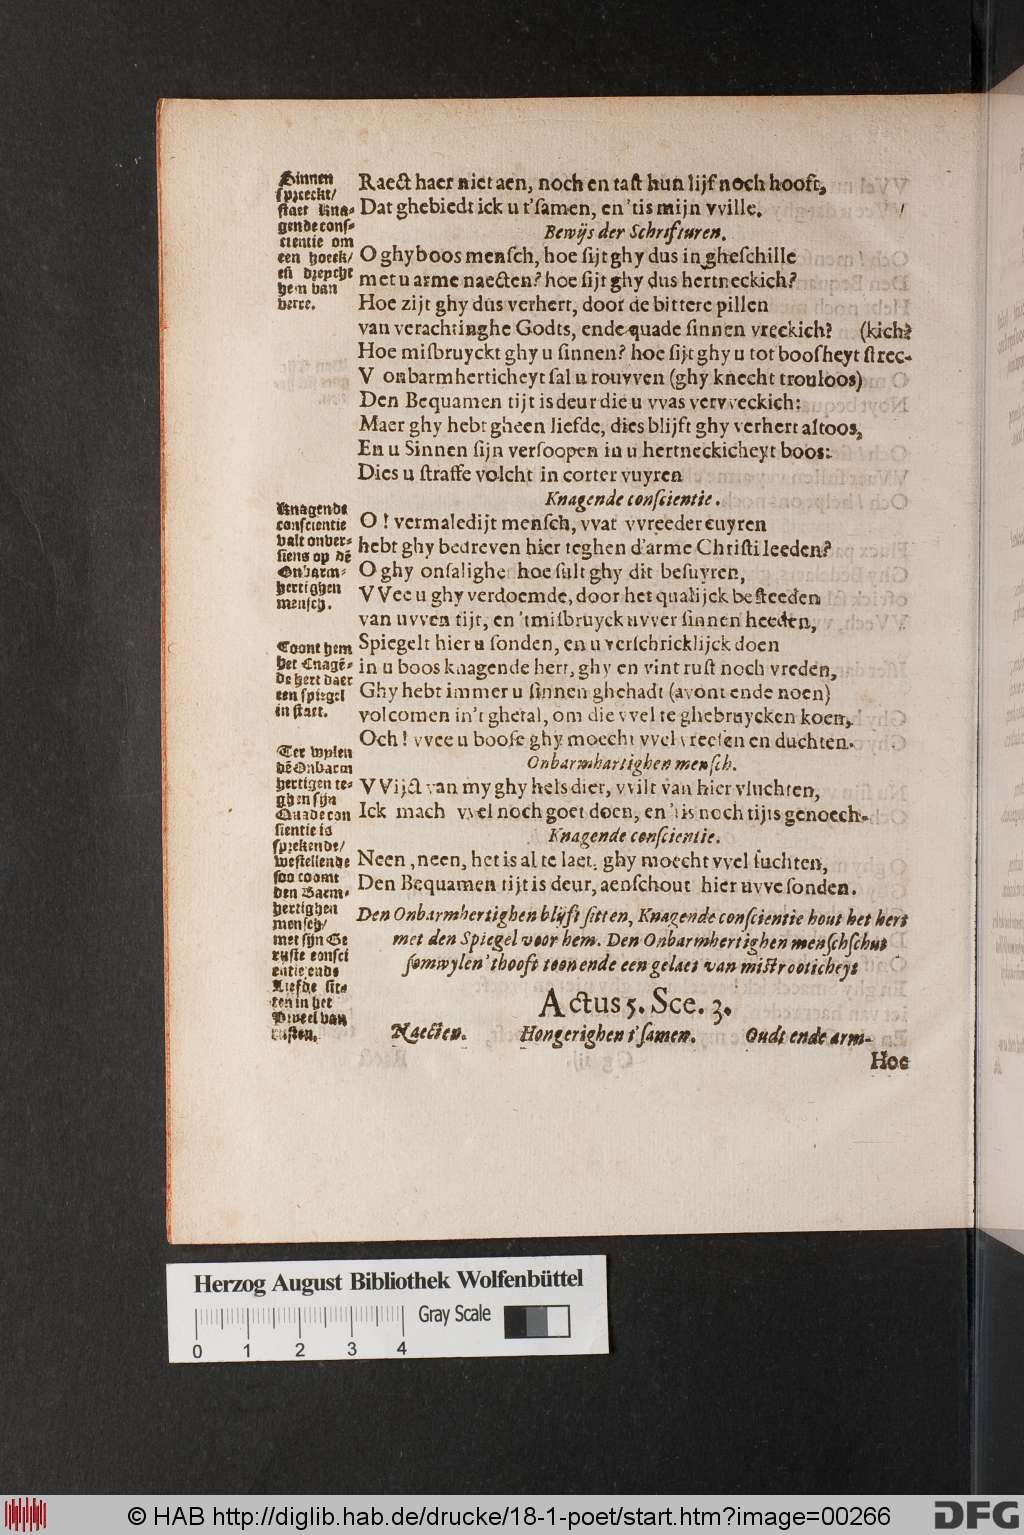 Sinnen
spreeckt/
staet Kna-
gende cons-
cientie om
een hoeck/
en dreycht
hem van
verre.
Raect haer niet aen, noch en tast hun lijf noch hooft,
Dat ghebiedt ick u t'samen, en 'tis mijn vville.
Bewijs der Schrifturen.
O ghy boos mensch, hoe sijt ghy dus in gheschille
met u arme naecten? hoe sijt ghy dus hertneckich?
Hoe zijt ghy dus verhert, door de bittere pillen
van verachtinghe Godts, ende quade sinnen vreckich? (kich?
Hoe misbruyckt ghy u sinnen? hoe sijt ghy u tot boosheyt strec-
V onbarmherticheyt sal u rouvven (ghy knecht trouloos)
Den Bequamen tijt is deur die u vvas vervveckich:
Maer ghy hebt gheen liefde, dies blijft ghy verhert altoos,
En u Sinnen sijn versoopen in u hertneckicheyt boos:
Dies u straffe volcht in corter vuyren
Knagende conscientie.
Knagende
conscientie
valt onver-
siens op dē
Onbarm-
hertighen
mensch.
O! vermaledijt mensch, vvat vvreeder cuyren
hebt ghy bedreven hier teghen d'arme Christi leeden?
O ghy onsalighe hoe sult ghy dit besuyren,
VVee u ghy verdoemde, door het qualijck besteeden
van uvven tijt, en 'tmisbruyck uvver sinnen heeden,
Toont hem
het Cnagē-
de hert daer
een spiegel
in staet.
Spiegelt hier u sonden, en u verschricklijck doen
in u boos knagende hert, ghy en vint rust noch vreden,
Ghy hebt immer u sinnen ghehadt (avont ende noen)
volcomen in't ghetal, om die vvel te ghebruycken koen,
Och! vvee u boose ghy moecht vvel vreesen en duchten.
Onbarmhartighen mensch.
Ter wylen
dē Onbarm
hertigen te-
ghen sijn
Quade con
sientie is
sprekende/
westellende
soo coomt
den Barm-
hertighen
mensch/
met sijn Ge
ruste consci
entie ende
Liefde sit-
ten in het
Prieel van
rusten.
VVijct van my ghy hels dier, vvilt van hier vluchten,
Ick mach vvel noch goet doen, en 'tis noch tijts genoech.
Knagende conscientie.
Neen, neen, het is al te laet, ghy moecht vvel suchten,
Den Bequamen tijt is deur, aenschout hier uvve sonden.
Den Onbarmhertighen blijft sitten, Knagende conscientie hout het hert
met den Spiegel voor hem. Den Onbarmhertighen menschschut
somwylen 'thooft toonende een gelaet van mistrooticheyt
Actus 5. Sce. 3.
Naecten. Hongerighen t'samen. Oudt ende arm-
Hoe
Herzog August Bibliothek Wolfenbüttel
Gray Scale
0 1 2 3 4
© HAB http://diglib.hab.de/drucke/18-1-poet/start.htm?image=00266
DFG